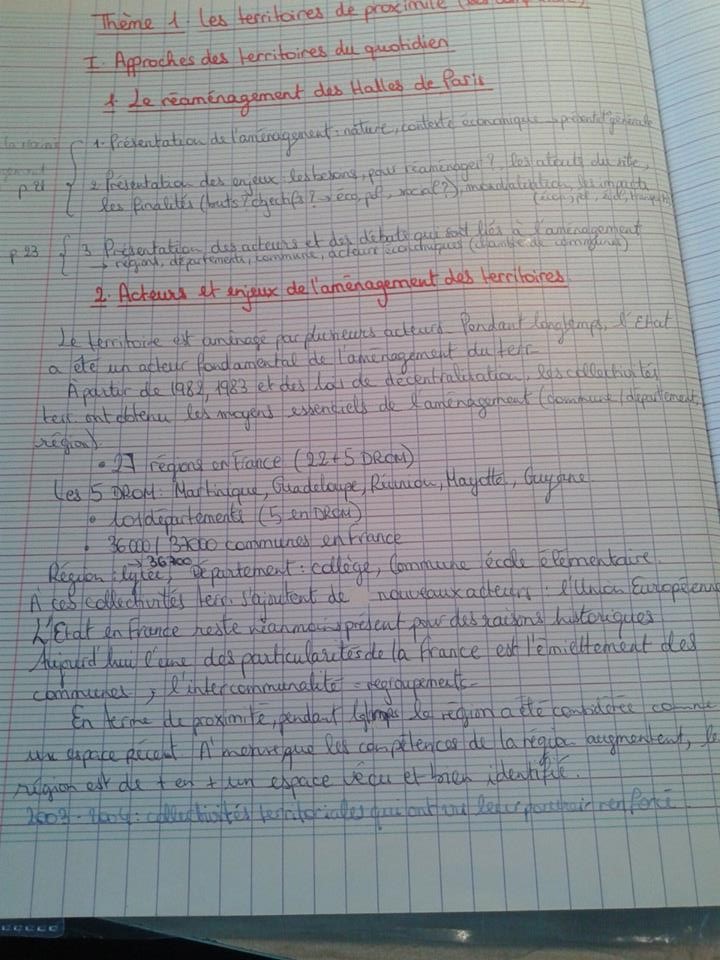 Thème 1. Les territoires de proximité
I. Approches des territoires du quotidien
1. Le réaménagement des Halles de Paris
1. Présentation de l'aménagement : nature, contexte économique → générale
p 21
2 Présentation des enjeux, les besoins, pour réaménager ?, les atouts du site,
les finalités (buts ? objectifs ? → éco, pol, social ?), les impacts
p 23
3 Présentation des acteurs et des débats qui sont liés à l'aménagement
→ régions, départements, commune, acteurs économiques (chambre de commerce)
2. Acteurs et enjeux de l'aménagement des territoires.
Le territoire est aménagé par plusieurs acteurs. Pendant longtemps, l'Etat
a été un acteur fondamental de l'aménagement du terr.
A partir de 1982, 1983 et des lois de décentralisation, les collectivités
terr. ont obtenu les moyens essentiels de l'aménagement (commune / département
région).
• 27 régions en France (22 + 5 DROM)
Les 5 DROM : Martinique, Guadeloupe, Réunion, Mayotte, Guyane.
• 101 départements (5 en DROM)
• 36000 / 37000 communes en France
→ 36700
Région : lycée, Département : collège, Commune école élémentaire.
A ces collectivités terr. s'ajoutent de nouveaux acteurs : l'Union Européenne
L'Etat en France reste néanmoins présent pour des raisons historiques
Aujourd'hui l'une des particularités de la France est l'émiettement des
communes, l'intercommunalité = regroupements
En terme de proximité, pendant lgtmps la région a été considérée comme
un espace récent. A mesure que les compétences de la région augmentent, la
région est de + en + un espace vécu et bien identifié.
2003 - 2004 : collectivités territoriales qui ont vu leur pouvoir renforcé